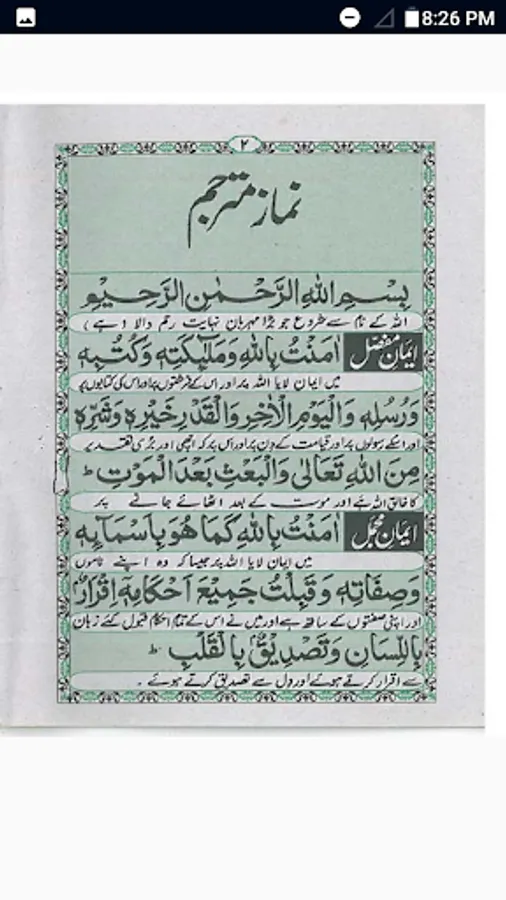 8:26 PM
٢
نماز مترجم
بِسْمِ اللهِ الرَّحْمٰنِ الرَّحِيْمِ
اللہ کے نام سے شروع جو بڑا مہربان نہایت رحم والا (ہے)
ایمان مفصل اٰمَنْتُ بِاللهِ وَمَلٰٓئِكَتِهٖ وَكُتُبِهٖ
میں ایمان لایا اللہ پر اور اس کے فرشتوں پر اور اس کی کتابوں پر
وَرُسُلِهٖ وَالْيَوْمِ الْاٰخِرِ وَالْقَدْرِ خَيْرِهٖ وَشَرِّهٖ
اور اسکے رسولوں پر اور قیامت کے دن پر اور اس پر کہ اچھی اور بری تقدیر
مِنَ اللهِ تَعَالٰى وَالْبَعْثِ بَعْدَ الْمَوْتِ ط
کا خالق اللہ ہے اور موت کے بعد اٹھائے جانے پر
ایمان مجمل اٰمَنْتُ بِاللهِ كَمَا هُوَ بِاَسْمَآئِهٖ
میں ایمان لایا اللہ پر جیسا کہ وہ اپنے ناموں
وَصِفَاتِهٖ وَقَبِلْتُ جَمِيْعَ اَحْكَامِهٖ اِقْرَارٌ
اور اپنی صفتوں کے ساتھ ہے اور میں نے اس کے تمام احکام قبول کئے زبان
بِاللِّسَانِ وَتَصْدِيْقٌ بِالْقَلْبِ ط
سے اقرار کرتے ہوئے اور دل سے تصدیق کرتے ہوئے ۔